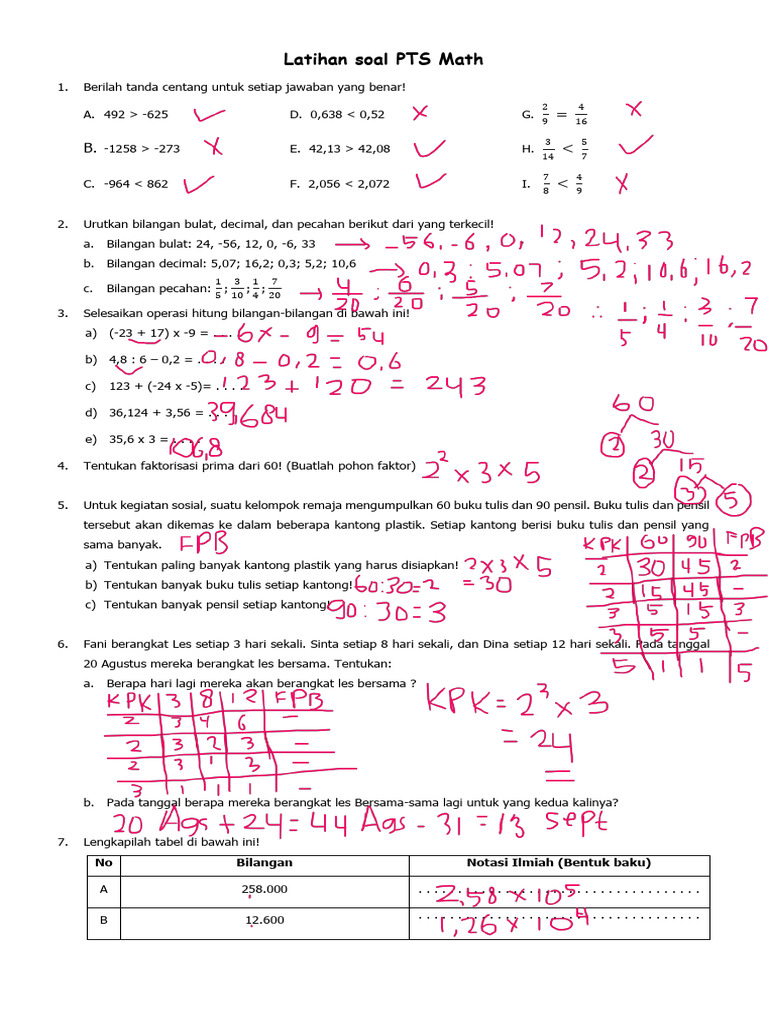 Latihan soal PTS Math
1. Berilah tanda centang untuk setiap jawaban yang benar!
A. 492 > -625 ✓ D. 0,638 < 0,52 × G. 2/9 = 4/16 ×
B. -1258 > -273 × E. 42,13 > 42,08 ✓ H. 3/14 < 5/7 ✓
C. -964 < 862 ✓ F. 2,056 < 2,072 ✓ I. 7/8 < 4/9 ×
2. Urutkan bilangan bulat, decimal, dan pecahan berikut dari yang terkecil!
a. Bilangan bulat: 24, -56, 12, 0, -6, 33 → -56, -6, 0, 12, 24, 33
b. Bilangan decimal: 5,07; 16,2; 0,3; 5,2; 10,6 → 0,3 ; 5,07 ; 5,2 ; 10,6 ; 16,2
c. Bilangan pecahan: 1/5; 3/10; 1/4; 7/20 → 4/20 ; 6/20 ; 5/20 ; 7/20 ∴ 1/5 ; 1/4 ; 3/10 ; 7/20
3. Selesaikan operasi hitung bilangan-bilangan di bawah ini!
a) (-23 + 17) x -9 = . . . -6 x -9 = 54
b) 4,8 : 6 – 0,2 = . . . 0,8 - 0,2 = 0,6
c) 123 + (-24 x -5)= . . . . 123 + 120 = 243
d) 36,124 + 3,56 = . . . . 39,684
e) 35,6 x 3 = . . . . 106,8
60
2 30
2 15
3 5
4. Tentukan faktorisasi prima dari 60! (Buatlah pohon faktor) 2² x 3 x 5
5. Untuk kegiatan sosial, suatu kelompok remaja mengumpulkan 60 buku tulis dan 90 pensil. Buku tulis dan pensil
tersebut akan dikemas ke dalam beberapa kantong plastik. Setiap kantong berisi buku tulis dan pensil yang
sama banyak. FPB
a) Tentukan paling banyak kantong plastik yang harus disiapkan! 2 x 3 x 5
= 30
b) Tentukan banyak buku tulis setiap kantong! 60:30=2
c) Tentukan banyak pensil setiap kantong! 90:30=3
KPK 60 90 FPB
2 30 45 2
2 15 45 -
3 5 15 3
3 5 5 -
5 1 1 5
6. Fani berangkat Les setiap 3 hari sekali. Sinta setiap 8 hari sekali, dan Dina setiap 12 hari sekali. Pada tanggal
20 Agustus mereka berangkat les bersama. Tentukan:
a. Berapa hari lagi mereka akan berangkat les bersama ?
KPK 3 8 12 FPB
2 3 4 6 -
2 3 2 3 -
2 3 1 3 -
3 1 1 1 -
KPK = 2³ x 3
= 24
b. Pada tanggal berapa mereka berangkat les Bersama-sama lagi untuk yang kedua kalinya?
20 Ags + 24 = 44 Ags - 31 = 13 Sept
7. Lengkapilah tabel di bawah ini!
No Bilangan Notasi Ilmiah (Bentuk baku)
A 258.000 2,58 x 10⁵
B 12.600 1,26 x 10⁴